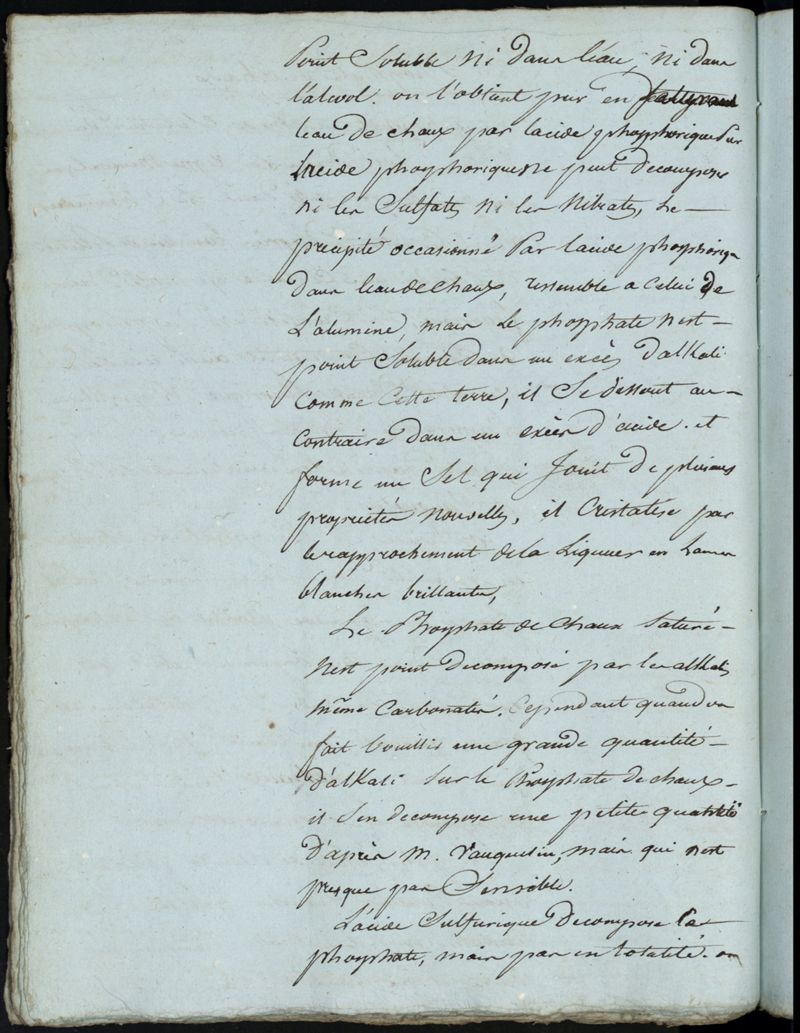 point Soluble ni dans l'eau, ni dans
l'alcool. on l'obtient pur en
leau de chaux par lacide phosphorique Pur
lacide phosphorique ne peut decomposer
ni les Sulfates ni les Nitrates, Le
precipité occasionné Par lacide phosphoriq
dans leau de chaux, ressemble a Celui De
L'alumine, mais Le phosphate nest
point Soluble dans un excès dalkali
comme Cette terre, il Se dissout au
Contraire dans un excès d'acide. et
forme un Sel qui Jouit De plusieurs
propriétés nouvelles, il Cristalise par
le rapprochement de la Liqueur en Lames
blanches brillantes,
Le Phosphate de Chaux Saturé
Nest point Decomposé par les alkalis
même Carbonatés. Cependant quand on
fait bouillir une grande quantité
D'alkali sur le Phosphate de chaux
il s'en decompose une petite quantité
D'après M. Vauquelin, mais qui nest
presque pas Sensible.
L'acide Sulfurique Decompose Le
phosphate, mais pas en totalité. on